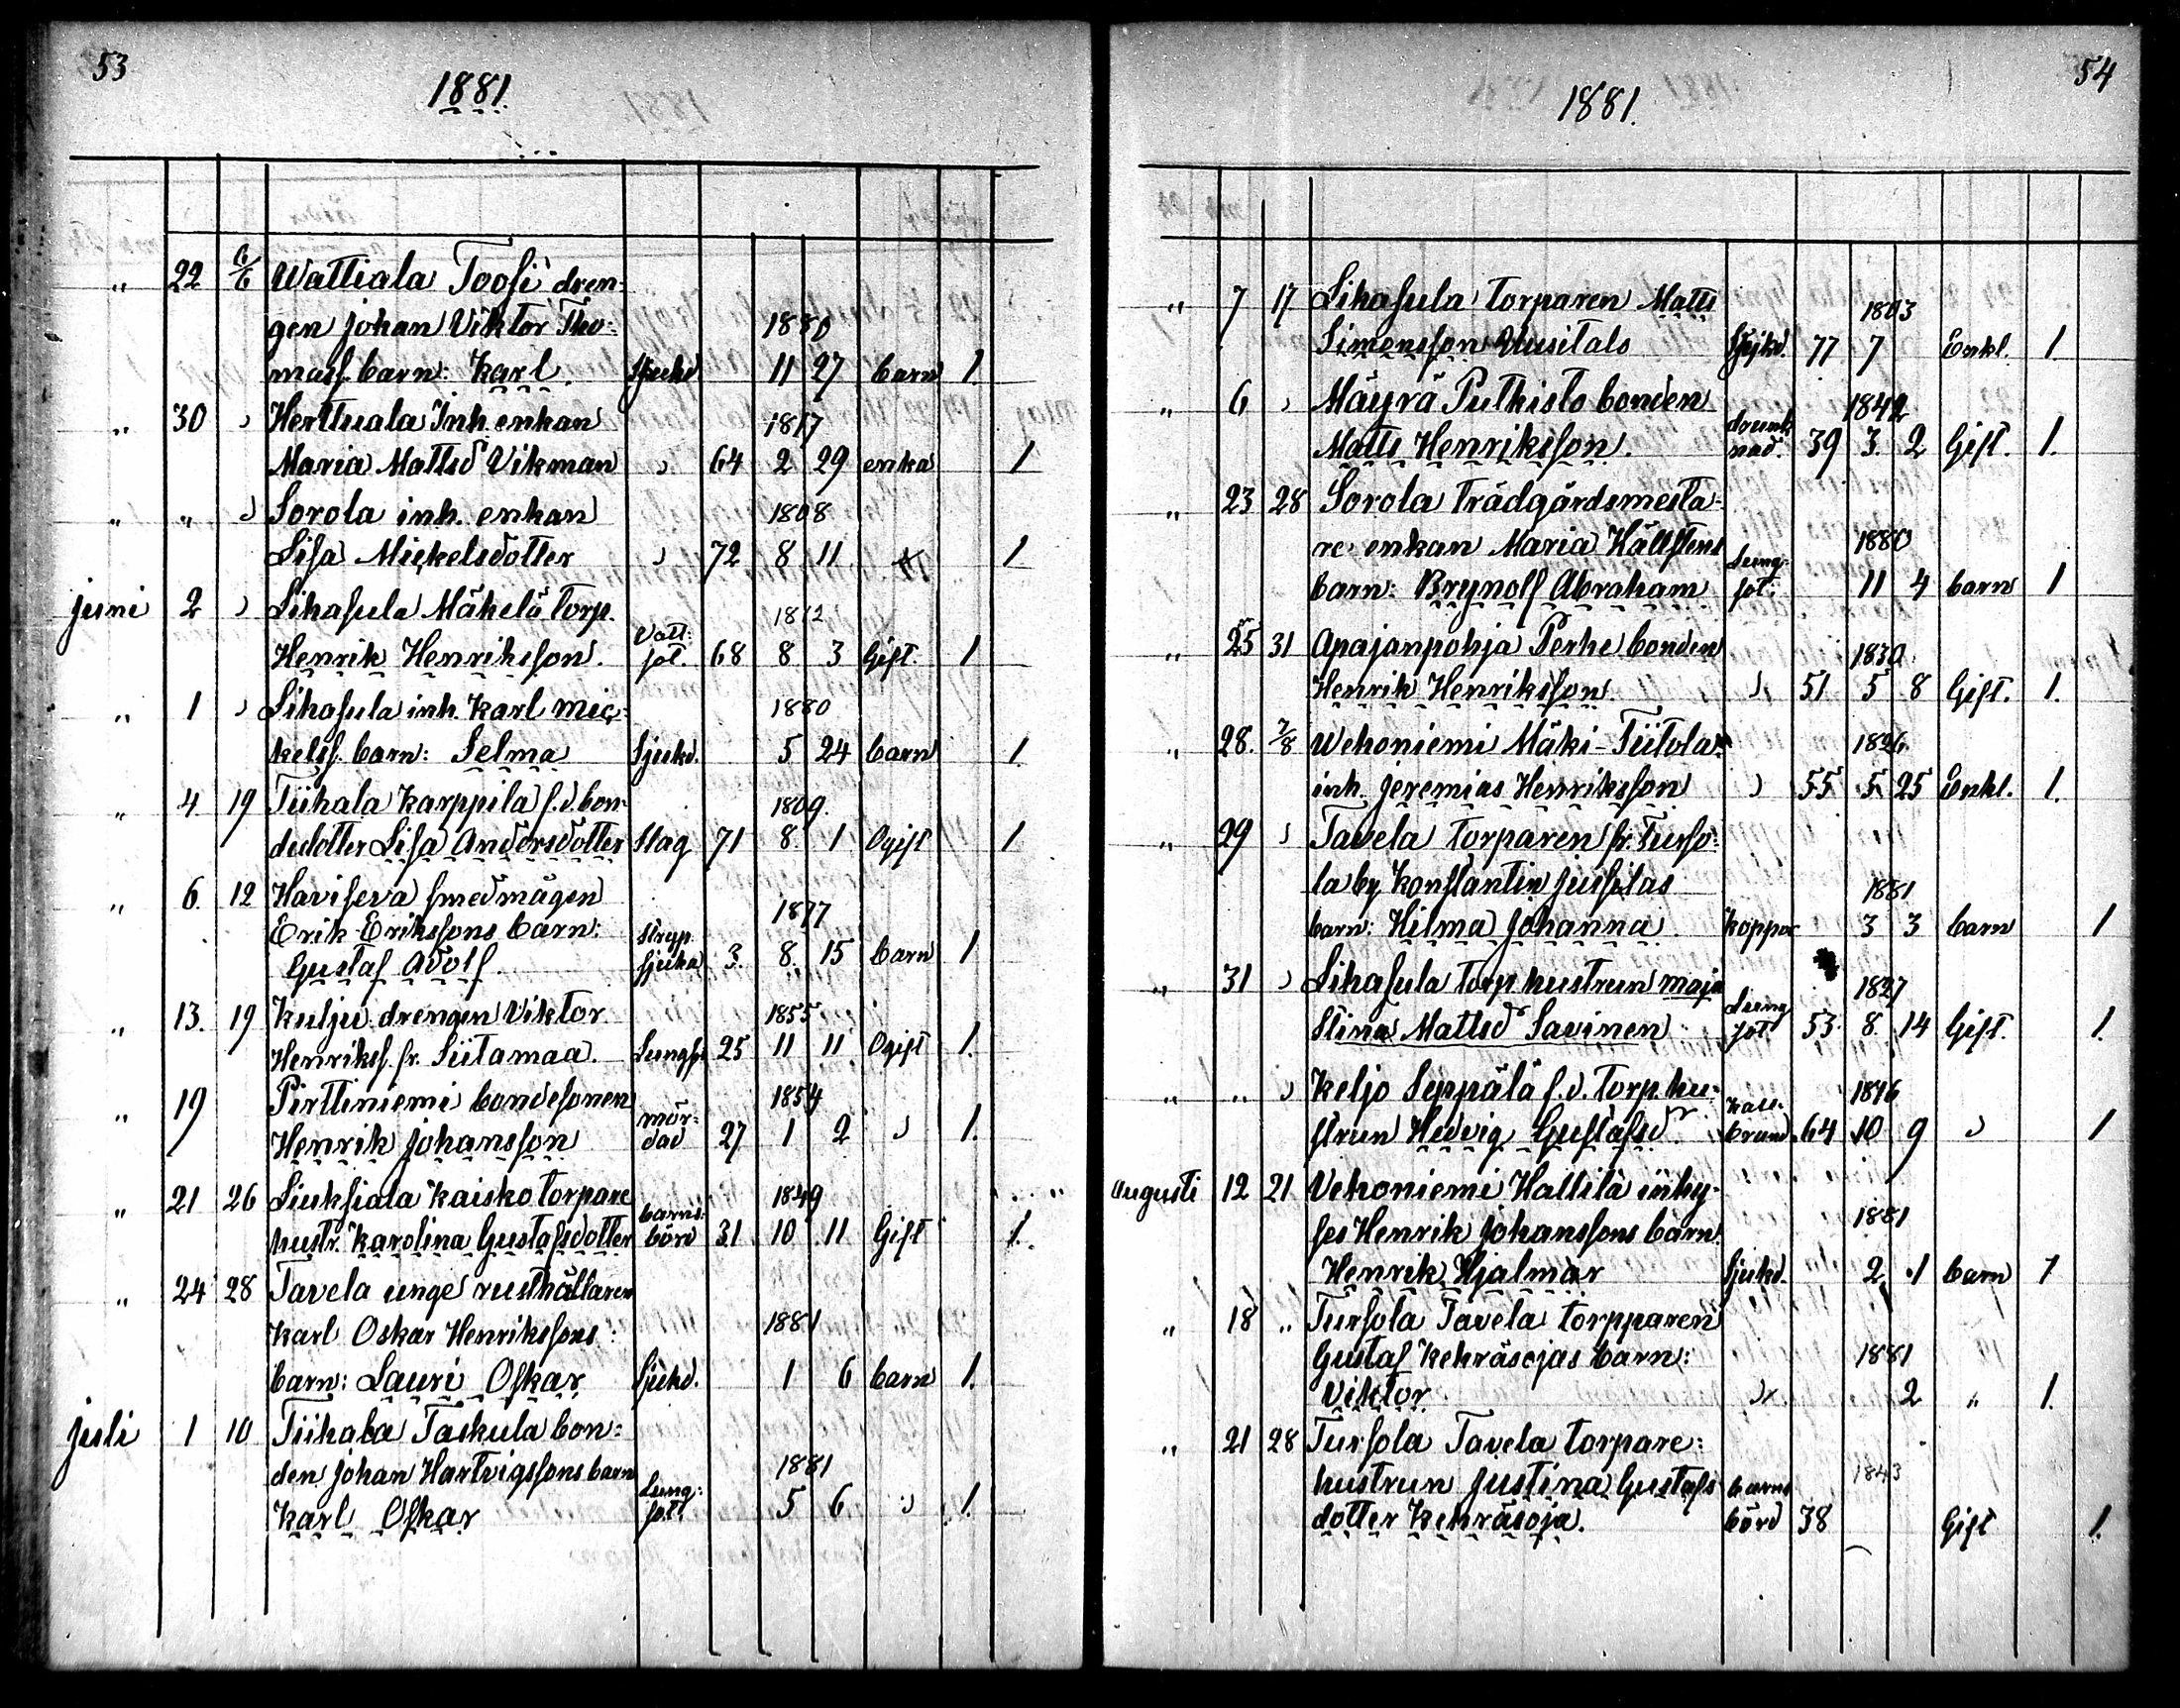 53
1881.
" 22 6/6 Wattiala Toosi dren-
gen Johan Viktor Tho- 1880
mass. barn: Karl. Sjukd 11 27 barn 1.
" 30 " Herttuala Inh. enkan 1817
Maria Mattsd Vikman " 64 2 29 enka 1
" " " Sorola inh. enkan 1808
Lisa Mickelsdotter " 72 8 11 1
juni 2 " Lihasula Mäkelä torp. 1812
Henrik Henriksson. Vatt: sot. 68 8 3 Gift. 1
" 1 " Lihasula inh. Karl Mic- 1880
kelss. barn: Selma Sjukd. 5 24 barn 1.
" 4 19 Tiihala Karppila f.d. bon- 1809.
dedotter Lisa Andersdotter Slag 71 8. 1 Ogift 1
" 6. 12 Haviseva smedmågen 1877
Erik Erikssons barn: Stryp-
Gustaf Adolf. sjuka 3. 8. 15 barn 1
" 13. 19 Kulju drengen Viktor 1855
Henrikss. fr. Siitamaa. Lungs. 25 11 11 Ogift 1.
" 19 Pirttiniemi bondesonen 1854
Henrik Johansson mör-dad 27 1 2 " 1.
" 21 26 Liuksiala Kaisko torpare 1849
hustr. Karolina Gustafsdotter barns-börd 31 10 11 Gift 1.
" 24 28 Tavela unge rusthållaren
Karl Oskar Henrikssons 1881
barn: Lauri Oskar Sjukd. 1 6 barn 1.
juli 1 10 Tiihala Taskula bon-
den Johan Hartvigssons barn 1881
Karl Oskar Lung-sot 5 6 " 1.
54
1881.
" 7 17 Lihasula torparen Matts 1803
Simonsson Uusitalo Sjukd. 77 7 Enkl. 1
" 6 " Mäyrä Puthisto bonden 1842
Matts Henriksson. drunk-nad. 39 3. 2 Gift. 1.
" 23 28 Sorola trädgårdsmesta-
re enkan Maria Hällstens 1880
barn: Brynolf Abraham Lung-sot: 11 4 barn 1
" 25 31 Apajanpohja Perhe bonden 1830
Henrik Henriksson " 51 5 8 Gift. 1.
" 28. 7/8 Wehoniemi Mäki-Tiitola 1826
inh. Jeremias Henriksson " 55 5 25 Enkl. 1.
" 29 " Tavela torparen fr. Turso-
la by Konstantin Jussilas 1881
barn: Hilma Johanna koppor 3 3 barn 1
" 31 " Lihasula torp.hustrun Maja 1827
Stina Mattsd Savinen Lung sot. 53 8. 14 Gift. 1.
" " " Keljo Seppälä f.d. torp.hu- 1816
strun Hedvig Gustafsd. kall-brand 64 10 9 " 1
Augusti 12 21 Vehoniemi Hallila inhy-
ses Henrik Johanssons barn 1881
Henrik Hjalmar Sjukd. 2 1 barn 1
" 18 " Tursola Tavela torpparen
Gustaf Kehräsojas barn: 1881
Viktor " 2 " 1.
" 21 28 Tursola Tavela torpare-
hustrun Justina Gustafs 1843
dotter Kehräsoja. barns börd 38 Gift 1.